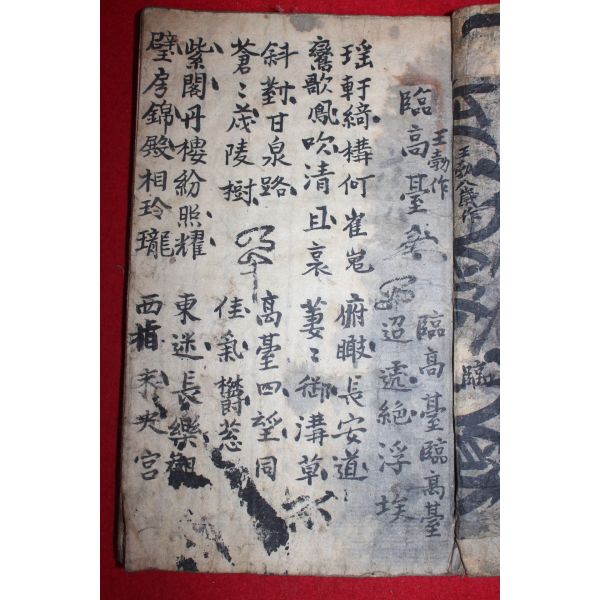 王勃八歲作
臨
臨高臺 臨高臺臨高臺
王勃作
迢遞絶浮埃
瑶軒綺構何崔嵬 俯瞰長安道
鸞歌鳳吹清且哀 萋〻御溝草
斜對甘泉路 高臺四望同
蒼〻茂陵樹 佳氣欝葱
紫閣丹樓紛照耀 東迷長樂觀
璧房錦殿相玲瓏 西指未央宮